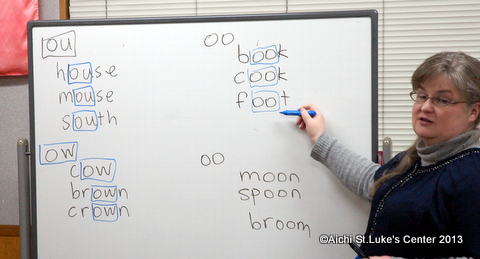 ou
house
mouse
south
ow
cow
brown
crown
oo
book
cook
foot
oo
moon
spoon
broom
©Aichi St.Luke's Center 2013